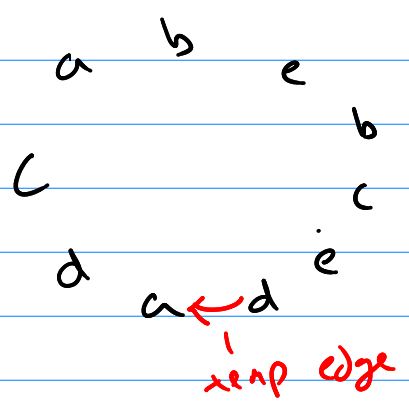 a b e
b
C c
d e
a d
temp edge